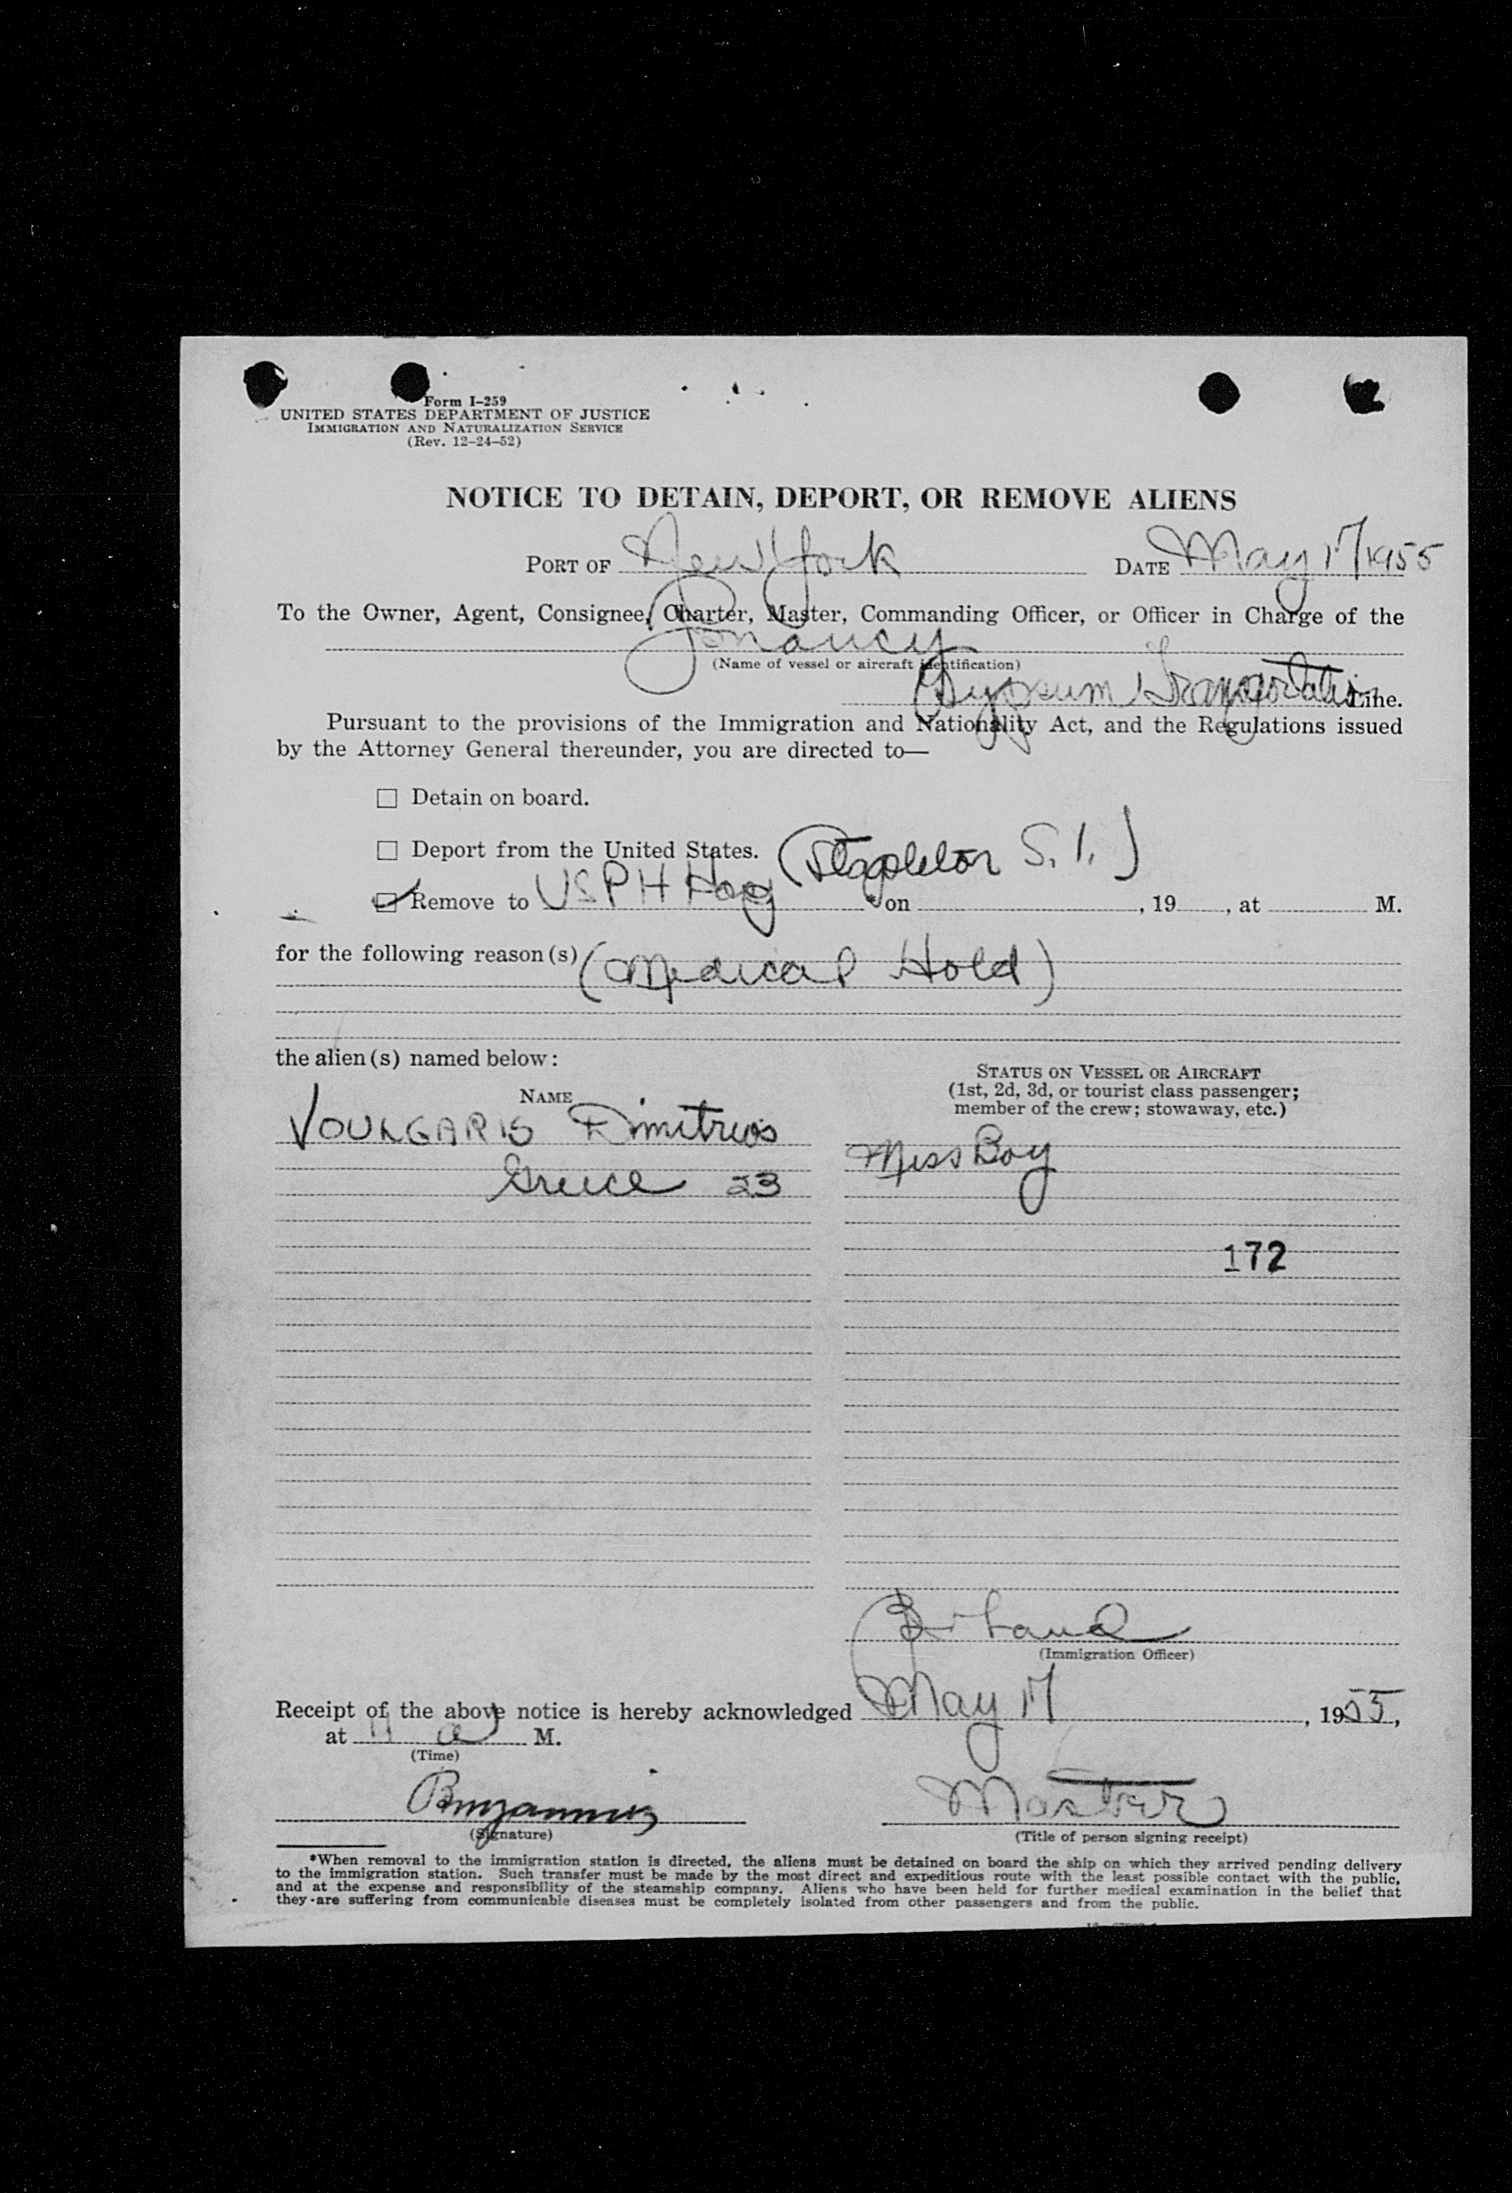 Form I-259
UNITED STATES DEPARTMENT OF JUSTICE
IMMIGRATION AND NATURALIZATION SERVICE
(Rev. 12-24-52)
NOTICE TO DETAIN, DEPORT, OR REMOVE ALIENS
PORT OF New York DATE May 17/1955
To the Owner, Agent, Consignee, Charter, Master, Commanding Officer, or Officer in Charge of the
(Name of vessel or aircraft identification)
Gypsum Transportation Line.
Pursuant to the provisions of the Immigration and Nationality Act, and the Regulations issued
by the Attorney General thereunder, you are directed to—
☐ Detain on board.
☐ Deport from the United States. (Stapleton S.I.)
☑ Remove to USPH Hosp * on , 19 , at M.
for the following reason(s) (Medical Hold)
the alien(s) named below:
NAME
STATUS ON VESSEL OR AIRCRAFT
(1st, 2d, 3d, or tourist class passenger;
member of the crew; stowaway, etc.)
VOULGARIS Dimitrios
Mess Boy
Greece 23
172
(Immigration Officer)
Receipt of the above notice is hereby acknowledged May 17, 1955,
at 11 a M.
(Time)
Master
(Signature)
(Title of person signing receipt)
*When removal to the immigration station is directed, the aliens must be detained on board the ship on which they arrived pending delivery
to the immigration station. Such transfer must be made by the most direct and expeditious route with the least possible contact with the public,
and at the expense and responsibility of the steamship company. Aliens who have been held for further medical examination in the belief that
they are suffering from communicable diseases must be completely isolated from other passengers and from the public.